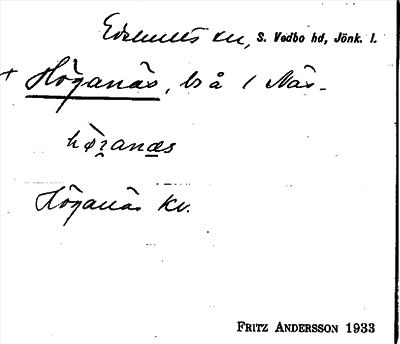 Edshults kn, S. Vedbo hd, Jönk. l.
+ Höganäs, bs å 1 Näs.
Höganäs Kv.
FRITZ ANDERSSON 1933